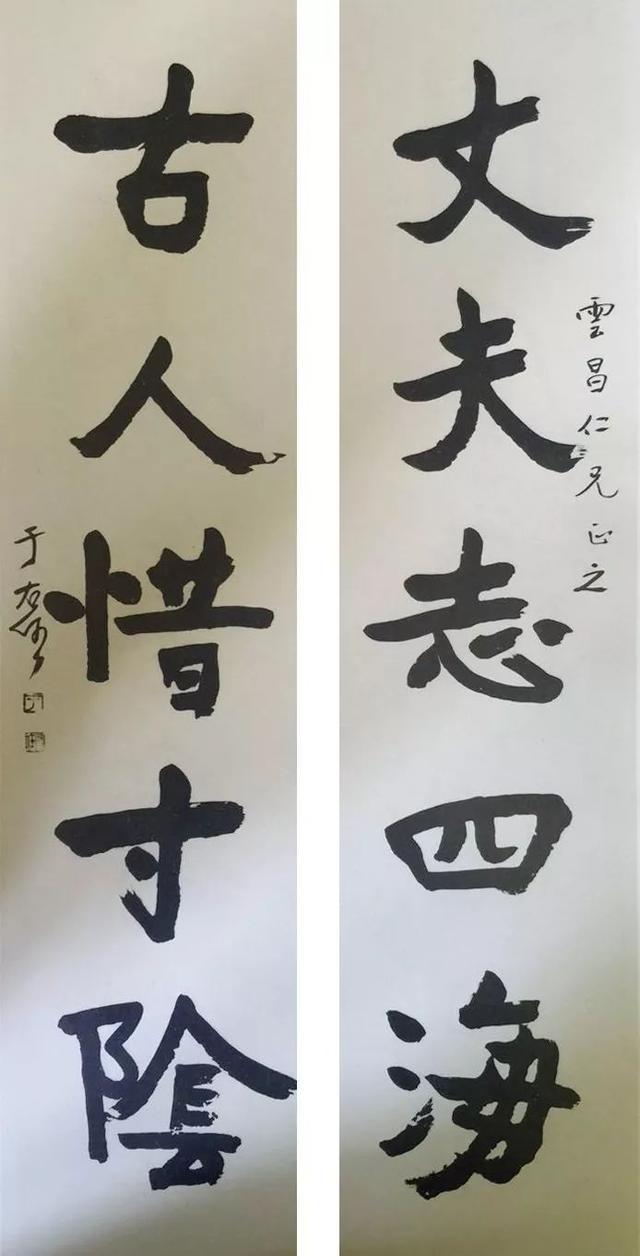 雲昌仁兄正之
丈夫志四海
古人惜寸陰
于右任